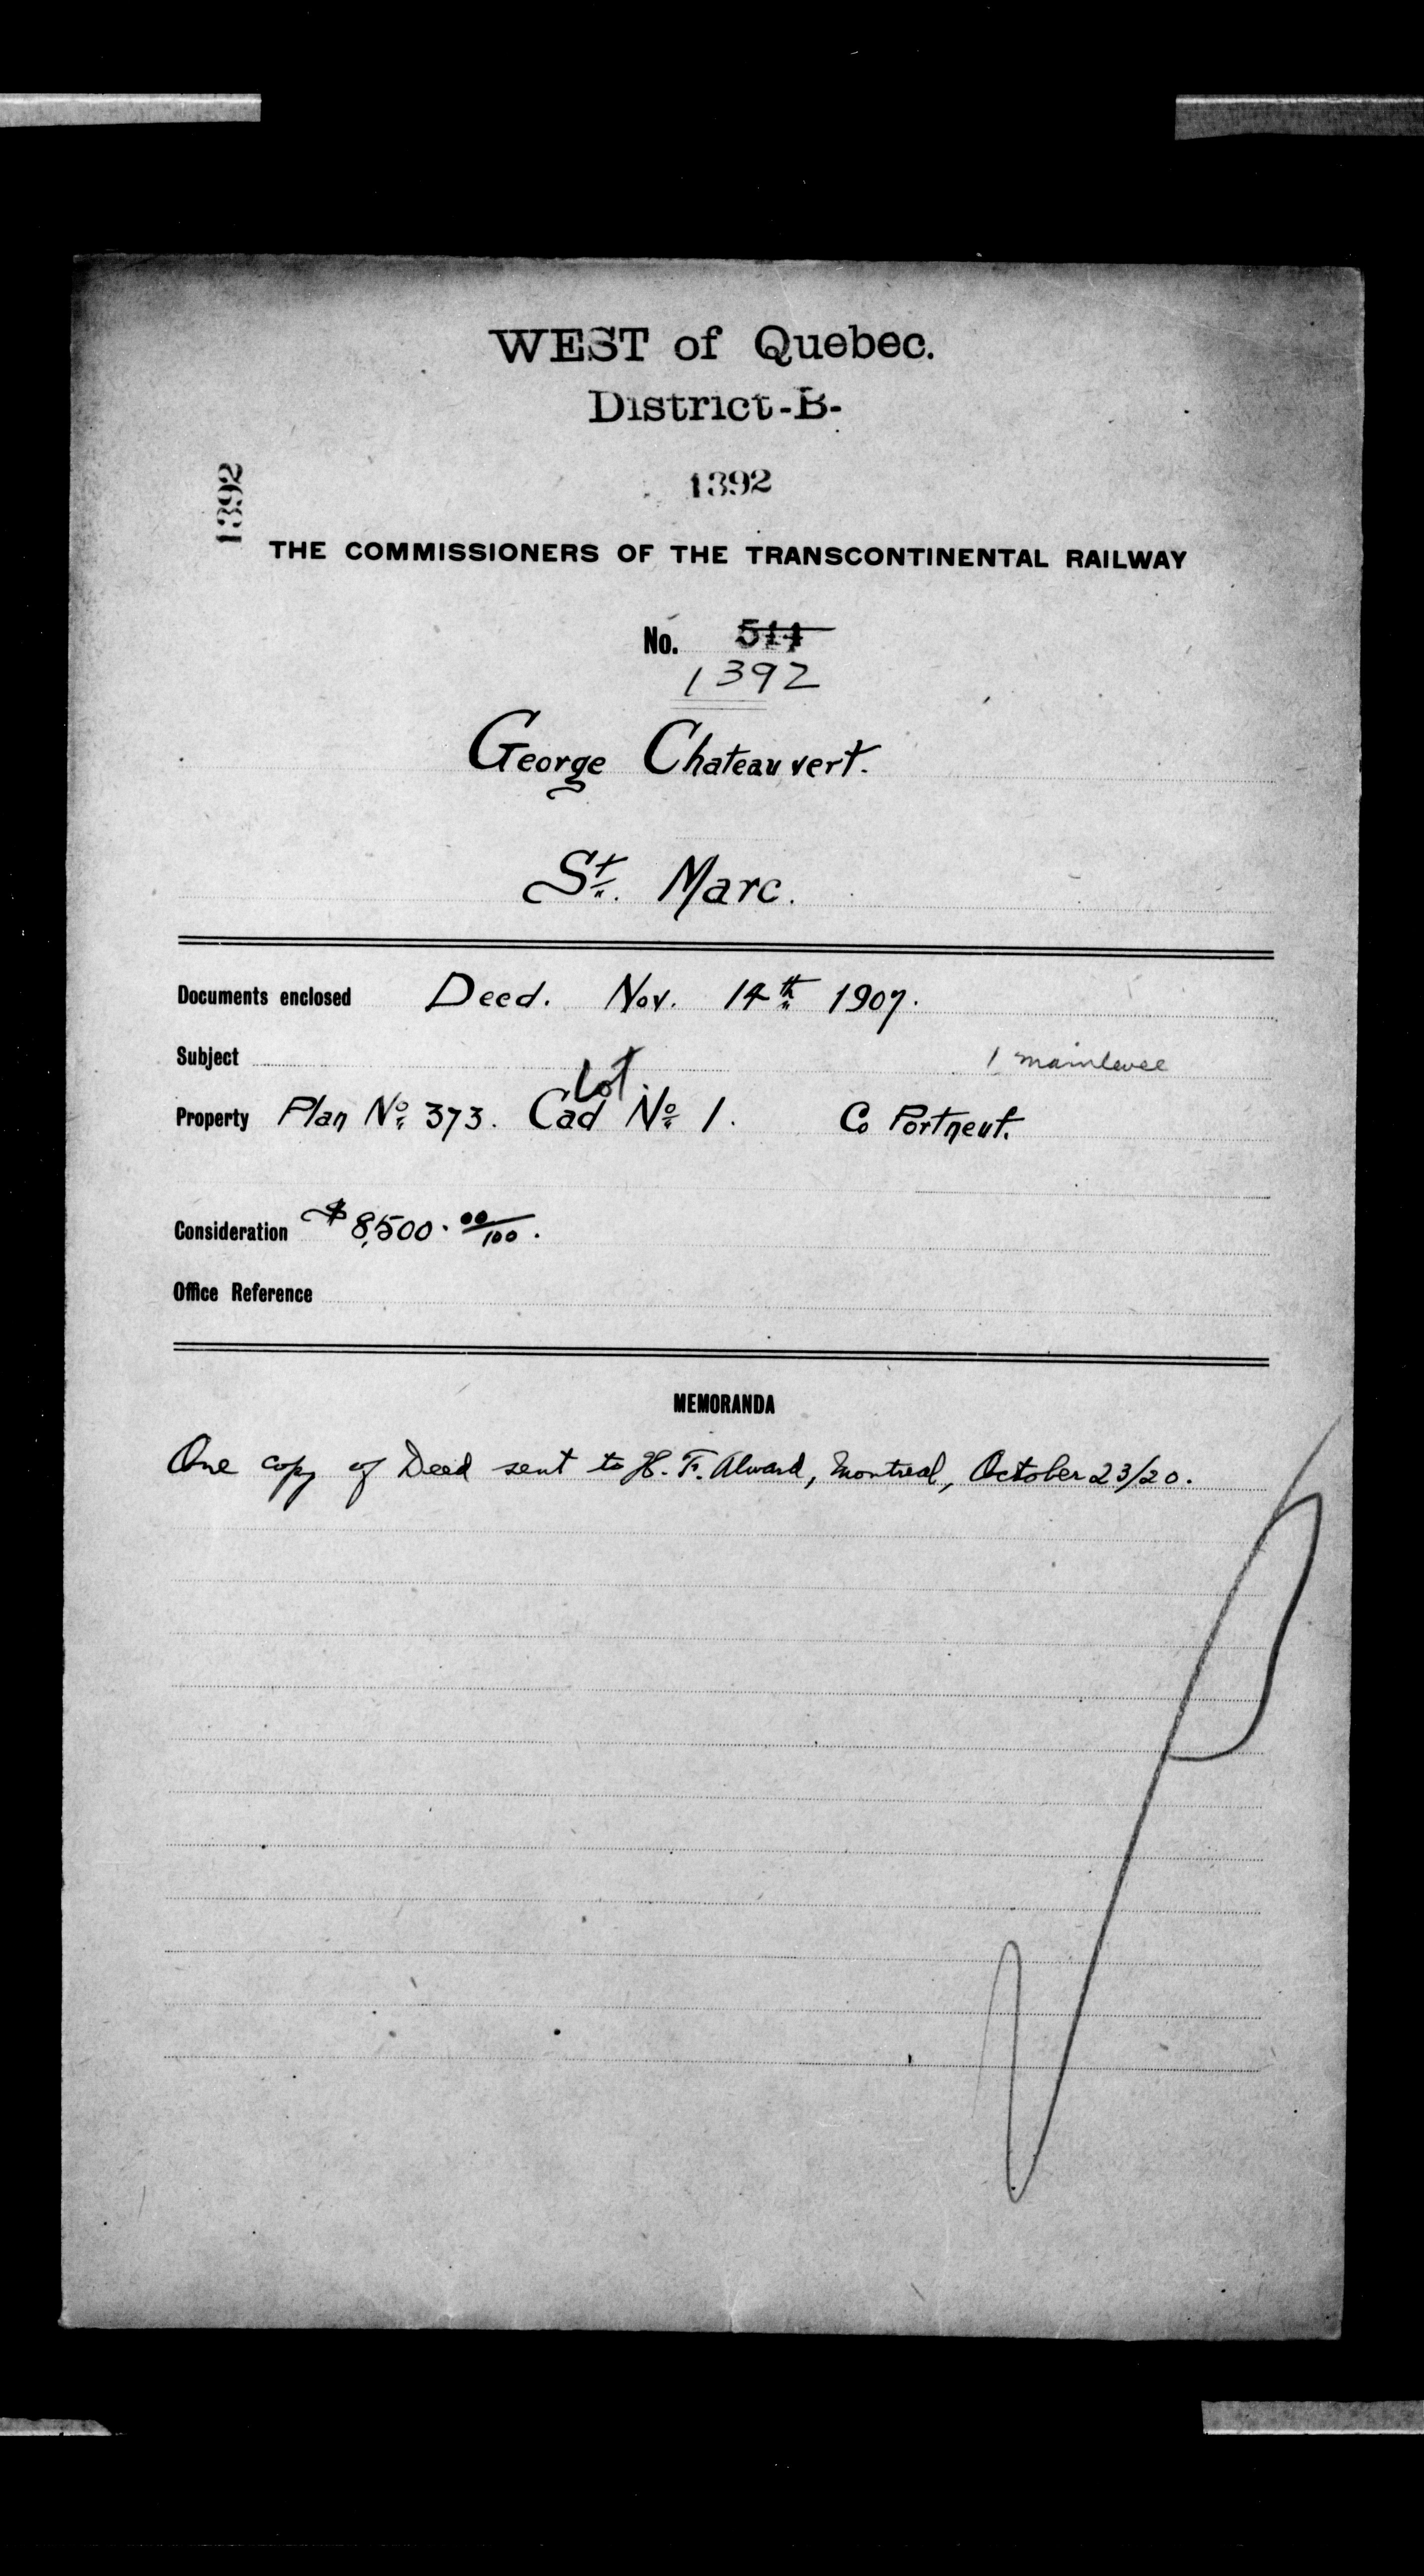 WEST of Quebec.
District-B-
1392
1392
THE COMMISSIONERS OF THE TRANSCONTINENTAL RAILWAY
No. 511
1392
George Chateauvert.
St. Marc.
Documents enclosed Deed. Nov. 14th 1907.
Subject 1 mainlevee
Lot.
Property Plan No. 373. Cad No. 1. Co Portneuf.
Consideration $8,500.00/100.
Office Reference
MEMORANDA
One copy of Deed sent to H. F. Alward, Montreal, October 23/20.